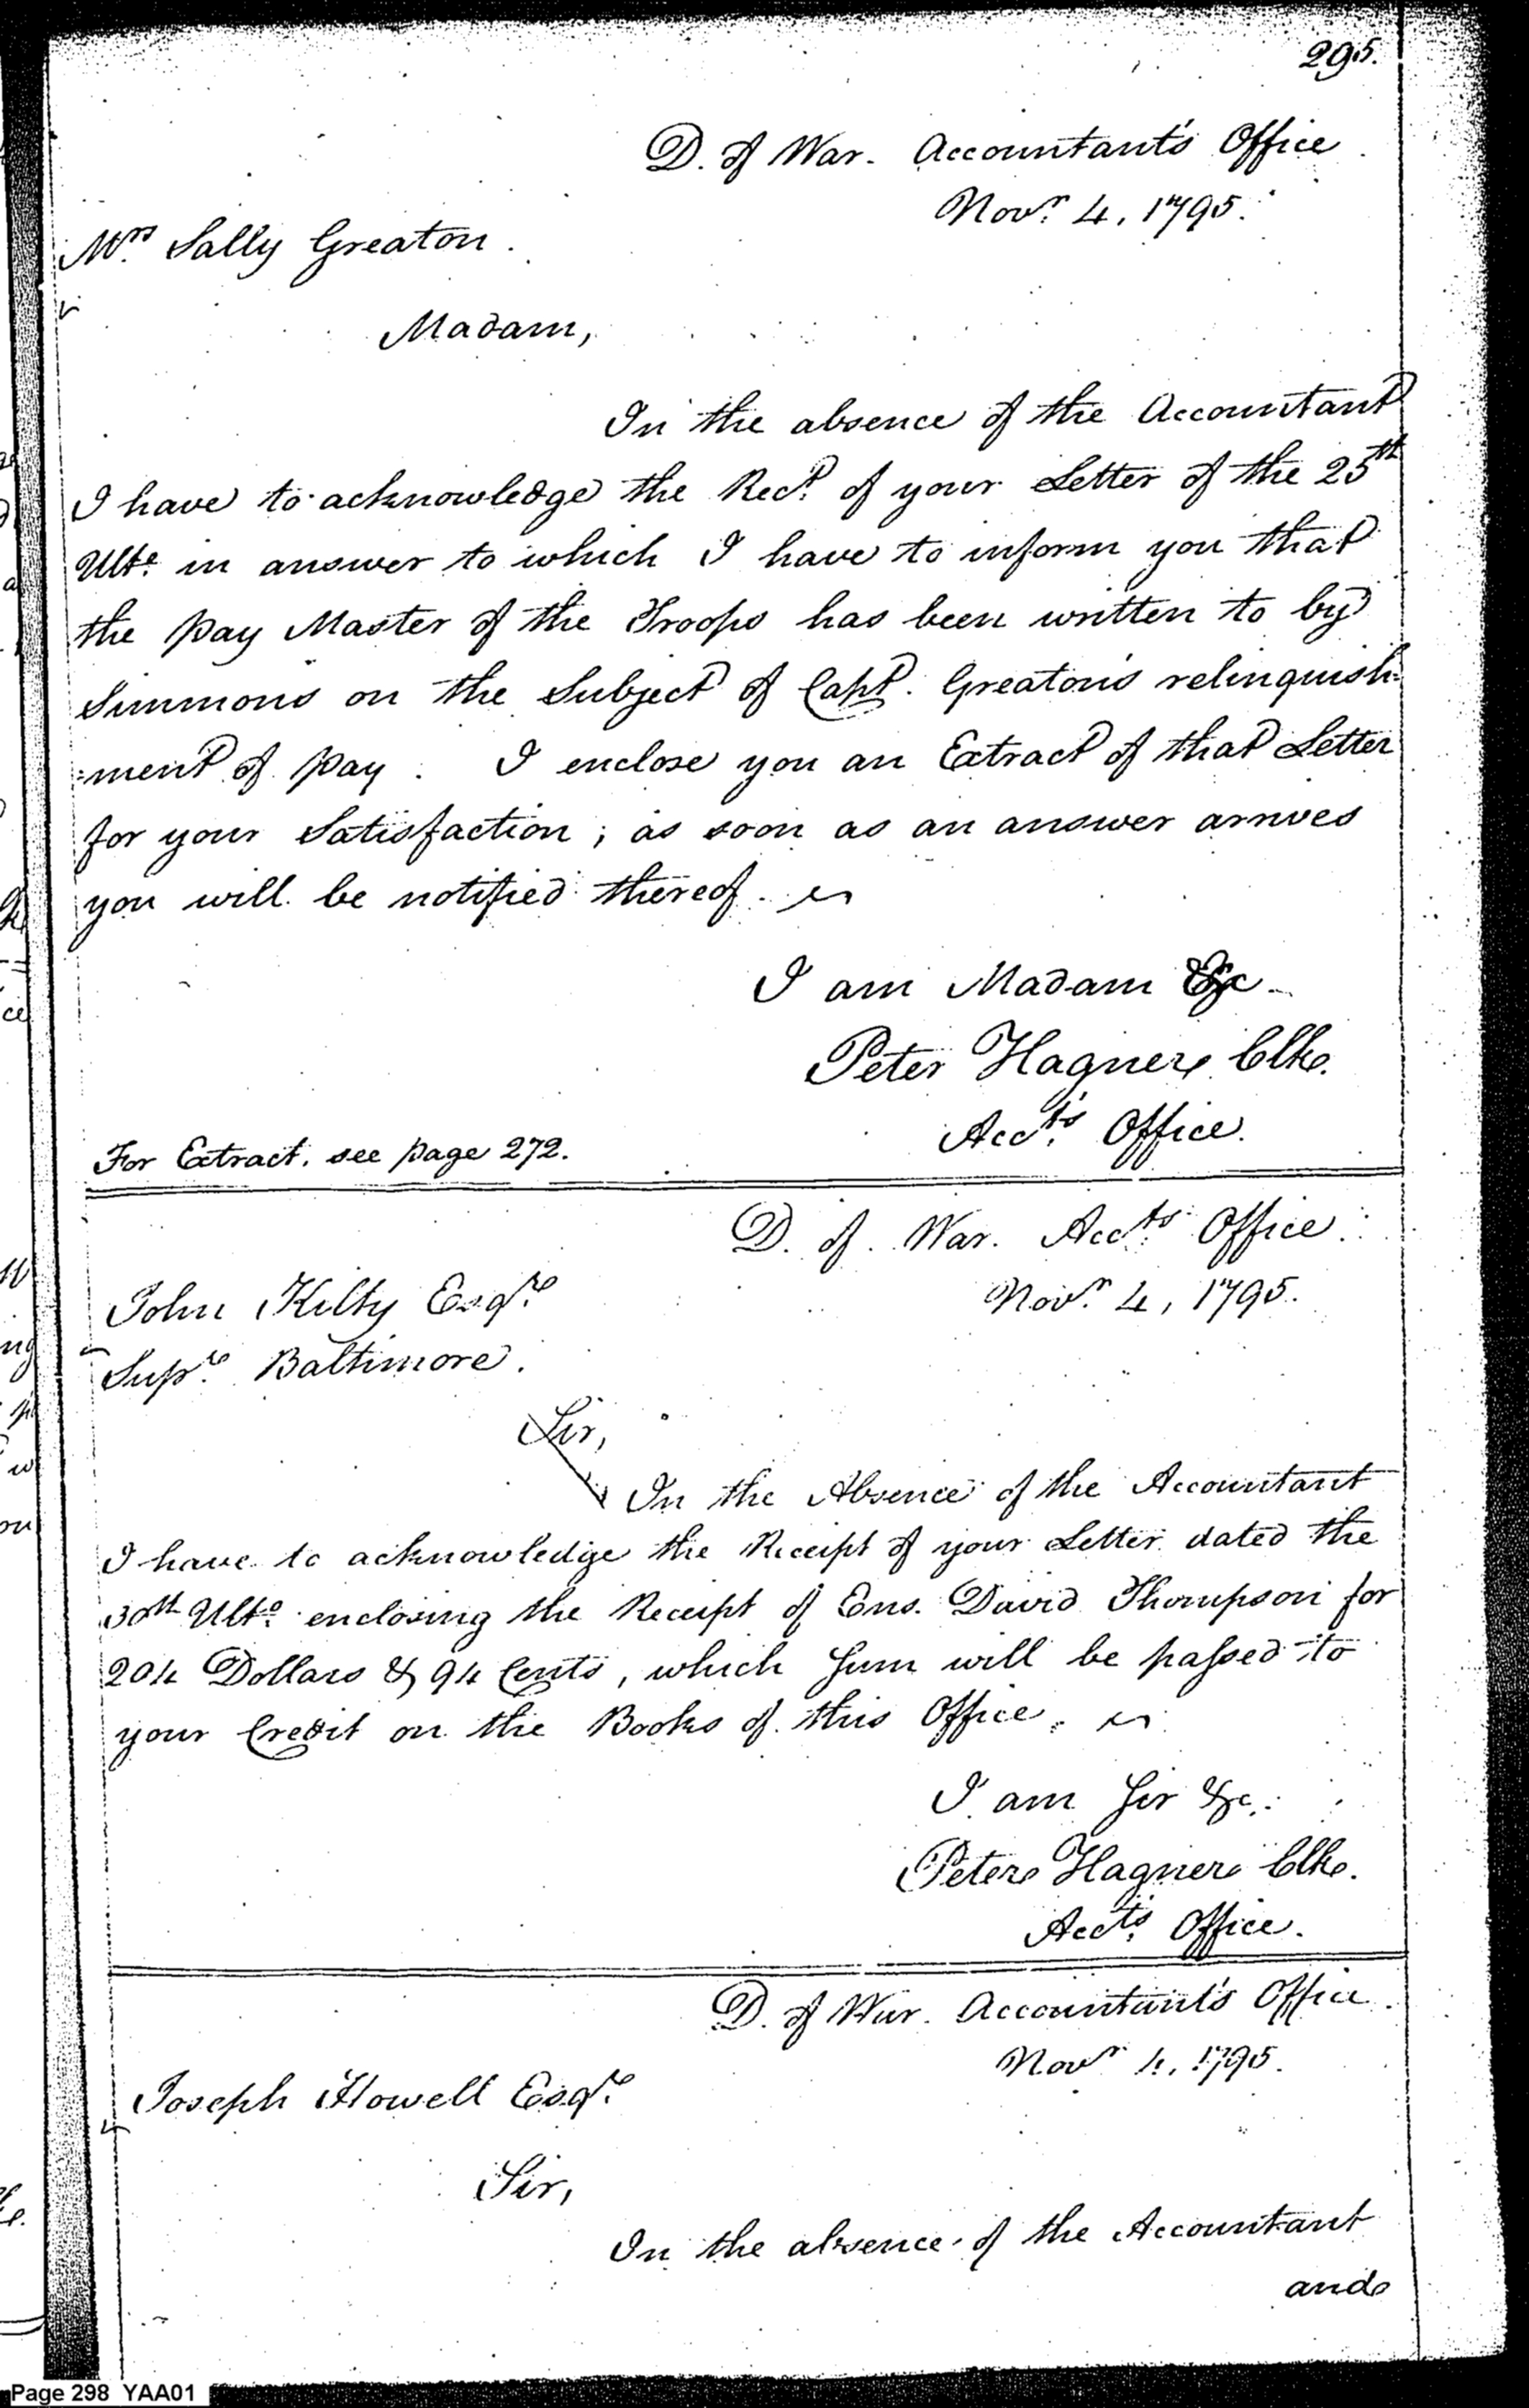 295.
D. of War. Accountant's Office
Novr. 4, 1795.
Mrs. Sally Greaton.
Madam,
In the absence of the Accountant
I have to acknowledge the Rect. of your Letter of the 25th
Ulto. in answer to which I have to inform you that
the pay Master of the Troops has been written to by
Simmons on the Subject of Capt. Greaton's relinquish-
:ment of pay. I enclose you an Extract of that Letter
for your Satisfaction; as soon as an answer arrives
you will be notified thereof.
I am Madam &c.
Peter Hagner, Clk.
Acct's. Office.
For Extract, see page 272.
D. of War. Accts. Office.
Novr. 4, 1795.
John Kilty Esqre.
Supre. Baltimore.
Sir,
In the Absence of the Accountant
I have to acknowledge the Receipt of your Letter dated the
30th Ulto. enclosing the Receipt of Ens. David Thompson for
204 Dollars & 94 Cents, which Sum will be passed to
your Credit on the Books of this Office.
I am Sir &c.
Peter Hagner Clk.
Acct's. Office.
D. of War. Accountant's Office.
Novr 4, 1795.
Joseph Howell Esqre.
Sir,
In the absence of the Accountant
and
Page 298 YAA01